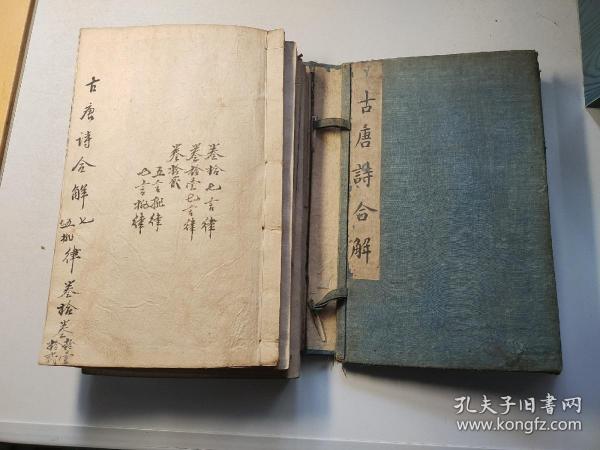 古唐詩合解
古唐诗合解七
五排律 卷拾
卷拾七言律
卷拾壹七言律
卷拾贰
五言排律
七言排律
孔夫子旧书网
www.kongfz.com